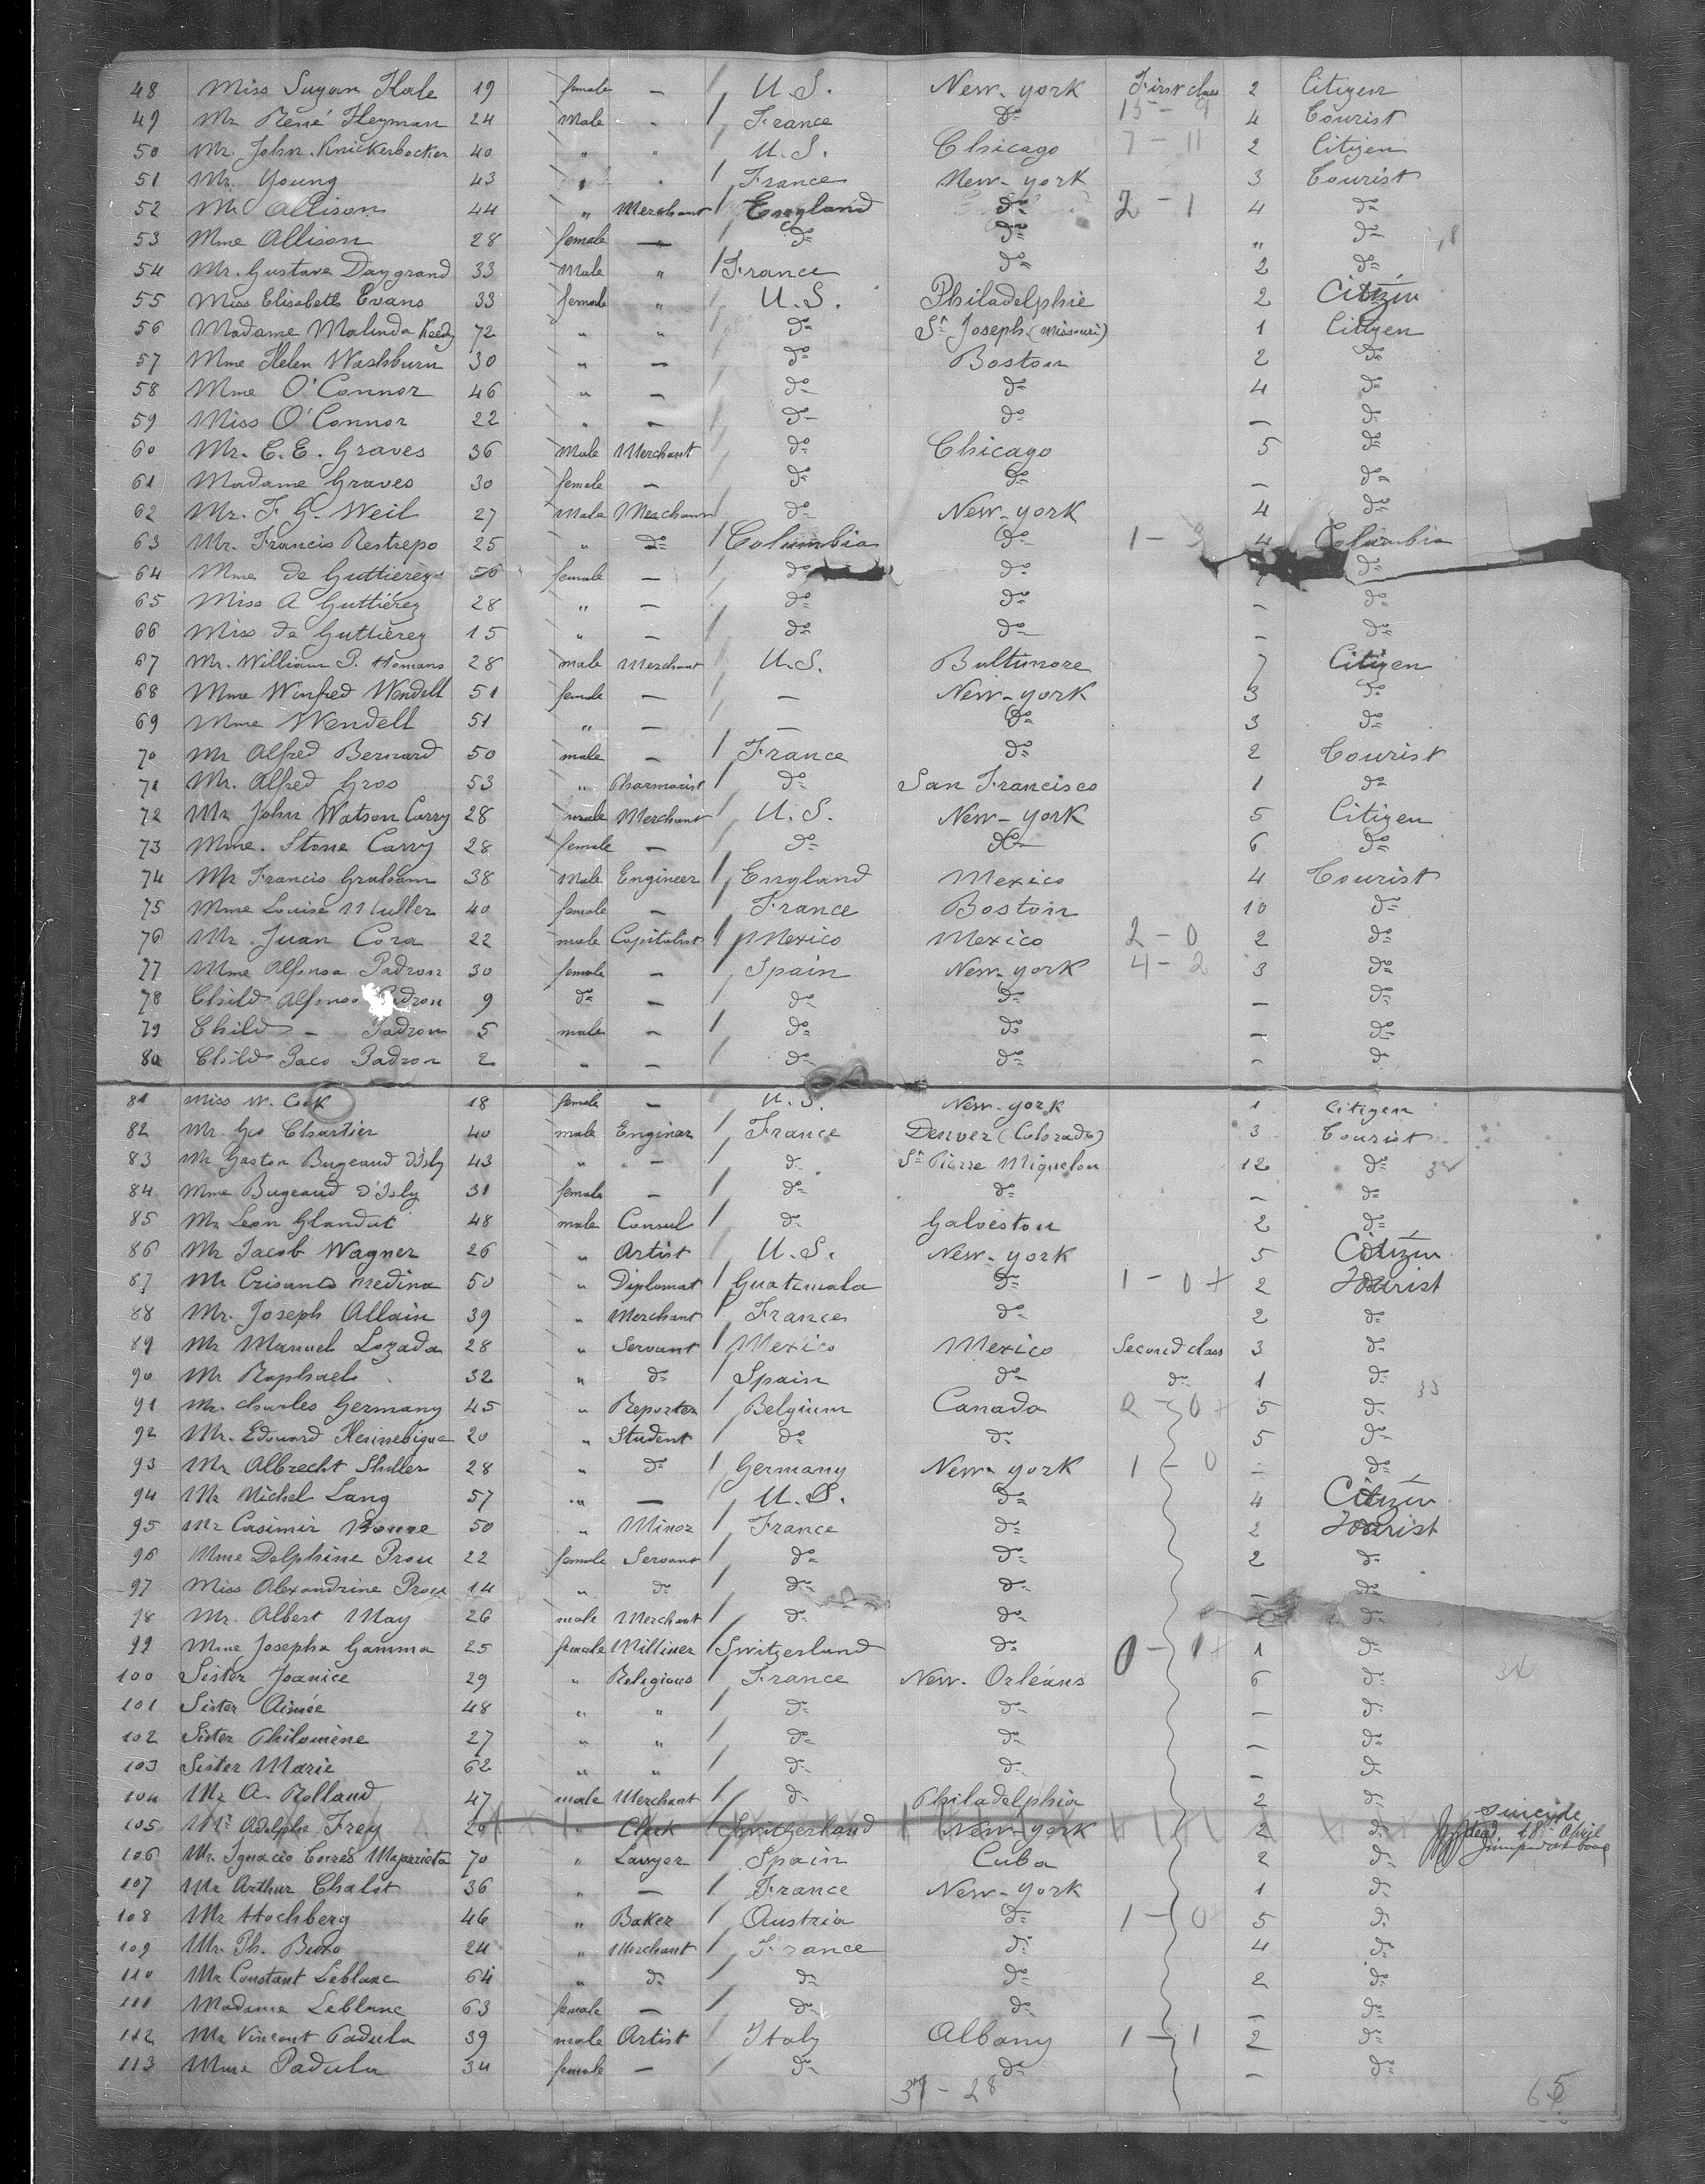 48 Miss Suzan Hale 19 female — U.S. New-york First class 2 Citizen
49 Mr René Heyman 24 Male France do 15-9 4 Tourist
50 Mr. John Knickerbocker 40 " " U.S. Chicago 7-11 2 Citizen
51 Mr. Young 43 " France New-york 3 Tourist
52 Mr Allison 44 " Merchant England do 2-1 4 do
53 Mme Allison 28 female — do do " do
54 Mr. Gustave Daygrand 33 Male " France do 2 do
55 Miss Elisabeth Evans 33 female " U.S. Philadelphie 2 Citizen
56 Madame Malinda 72 " " do St Joseph (Missouri) 1 Citizen
57 Mme Helen Washburn 30 " — do Boston 2 do
58 Mme O'Connor 46 " — do do 4 do
59 Miss O'Connor 22 " — do do — do
60 Mr. C. E. Graves 36 Male Merchant do Chicago 5 do
61 Madame Graves 30 female — do do — do
62 Mr. F. G. Weil 27 Male Merchant do New-york 4 do
63 Mr. Francis Restrepo 25 " do Columbia do 1-3 4 Columbia
64 Mme de Guttiérez 50 female — do do do
65 Miss A Guttiérez 28 " — do do — do
66 Miss de Guttiérez 15 " — do do — do
67 Mr. William P. Homans 28 male Merchant U.S. Baltimore 7 Citizen
68 Mme Winfred Wendell 51 female — — New-york 3 do
69 Mme Wendell 51 " — — do 3 do
70 Mr Alfred Bernard 50 male — France do 2 Tourist
71 Mr. Alfred Gros 53 " Pharmacist do San Francisco 1 do
72 Mr John Watson Carry 28 male Merchant U.S. New-york 5 Citizen
73 Mme. Stone Carry 28 female — do do 6 do
74 Mr Francis Graham 38 Male Engineer England Mexico 4 Tourist
75 Mme Louise Muller 40 female — France Boston 10 do
76 Mr. Juan Cora 22 male Capitalist Mexico Mexico 2-0 2 do
77 Mme Alfonsa Padron 30 female — Spain New-york 4-2 3 do
78 Child Alfonso Padron 9 do — do do — do
79 Child — Padron 5 male — do do — do
80 Child Paco Padron 2 " — do do — do
81 Miss W. 18 female — U.S. New-york 1 Citizen
82 Mr. Geo Chartier 40 male Enginer France Denver (Colorado) 3 Tourist
83 Mr Gaston Bugeaud d'Isly 43 " — do St Pierre Miquelon 12 do
84 Mme Bugeaud d'Isly 31 female — do do — do
85 Mr Leon Glandut 48 male Consul do Galveston 2 do
86 Mr Jacob Wagner 26 " Artist U.S. New-york 5 Citizen
87 Mr Crisanto Medina 50 " Diplomat Guatemala do 1-0+ 2 Tourist
88 Mr. Joseph Allain 39 " Merchant France do 2 do
89 Mr Manuel Lozada 28 " Servant Mexico Mexico Second class 3 do
90 Mr Raphael 32 " do Spain do do 1 do 33
91 Mr. Charles Germany 45 " Reporter Belgium Canada 2-0+ 5 do
92 Mr. Edouard Hennebique 20 " Student do do 5 do
93 Mr Albrecht Shiller 28 " do Germany New-york 1-0 — do
94 Mr Michel Lang 57 " — U.S. do 4 Citizen
95 Mr Casimir 50 " Minor France do 2 Tourist
96 Mme Delphine Prou 22 female Servant do do 2 do
97 Miss Alexandrine Prou 14 " do do do — do
98 Mr. Albert May 26 male Merchant do do do
99 Mme Josepha Gamma 25 female Milliner Switzerland do 0-1+ 1 do
100 Sister Joanice 29 " Religious France New-Orléans 6 do
101 Sister Aimée 48 " " do do — do
102 Sister Philomène 27 " " do do — do
103 Sister Marie 62 " " do do — do
104 Mr A. Rolland 47 male Merchant do Philadelphia 2 do
105 Mr Adolphe Frey 20 " Clerk Switzerland New-york 2 do suicide dead 18 April
106 Mr. Ignacio Torrès 70 " Lawyer Spain Cuba 2 do
107 Mr Arthur Chalot 36 " — France New-york 1 do
108 Mr Hochberg 46 " Baker Austria do 1-0 5 do
109 Mr. Ph. 24 " Merchant France do 4 do
110 Mr Constant Leblanc 64 " do do do 2 do
111 Madame Leblanc 63 female — do do — do
112 Mr Vincent Padula 39 male Artist Italy Albany 1-1 2 do
113 Mme Padula 34 female — do do — do
37-28